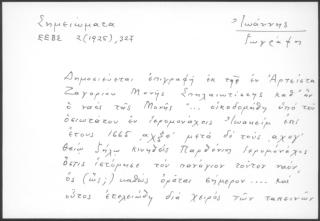 Σημειώματα
Ἰωάννης
ΕΕΒΣ 2(1925), 327
Ζωγράφος
Δημοσιεύεται ἐπιγραφὴ ἐκ τῆς ἐν Ἀρτσίστα
Ζαγορίου Μονῆς Σπηλαιωτίσσης καθ' ἣν
ὁ ναὸς τῆς Μονῆς "... οἰκοδομήθη ὑπὸ τοῦ
ὁσιωτάτου ἐν ἱερομονάχοις Ἰωακεὶμ ἐπὶ
ἔτους 1665 αχξε' μετὰ δὲ τοὺς αχογ'
θείῳ ζήλῳ κινηθεὶς Παρθένιος ἱερομονάχος
ὅστις ἱστόρησε τὸν πανάγιον τοῦτον ναόν,
ὃς (ὡς;) καθὼς ὁρᾶται σήμερον .... καὶ
οὗτος ἐτελειώθη διὰ χειρὸς τῶν ταπεινῶν